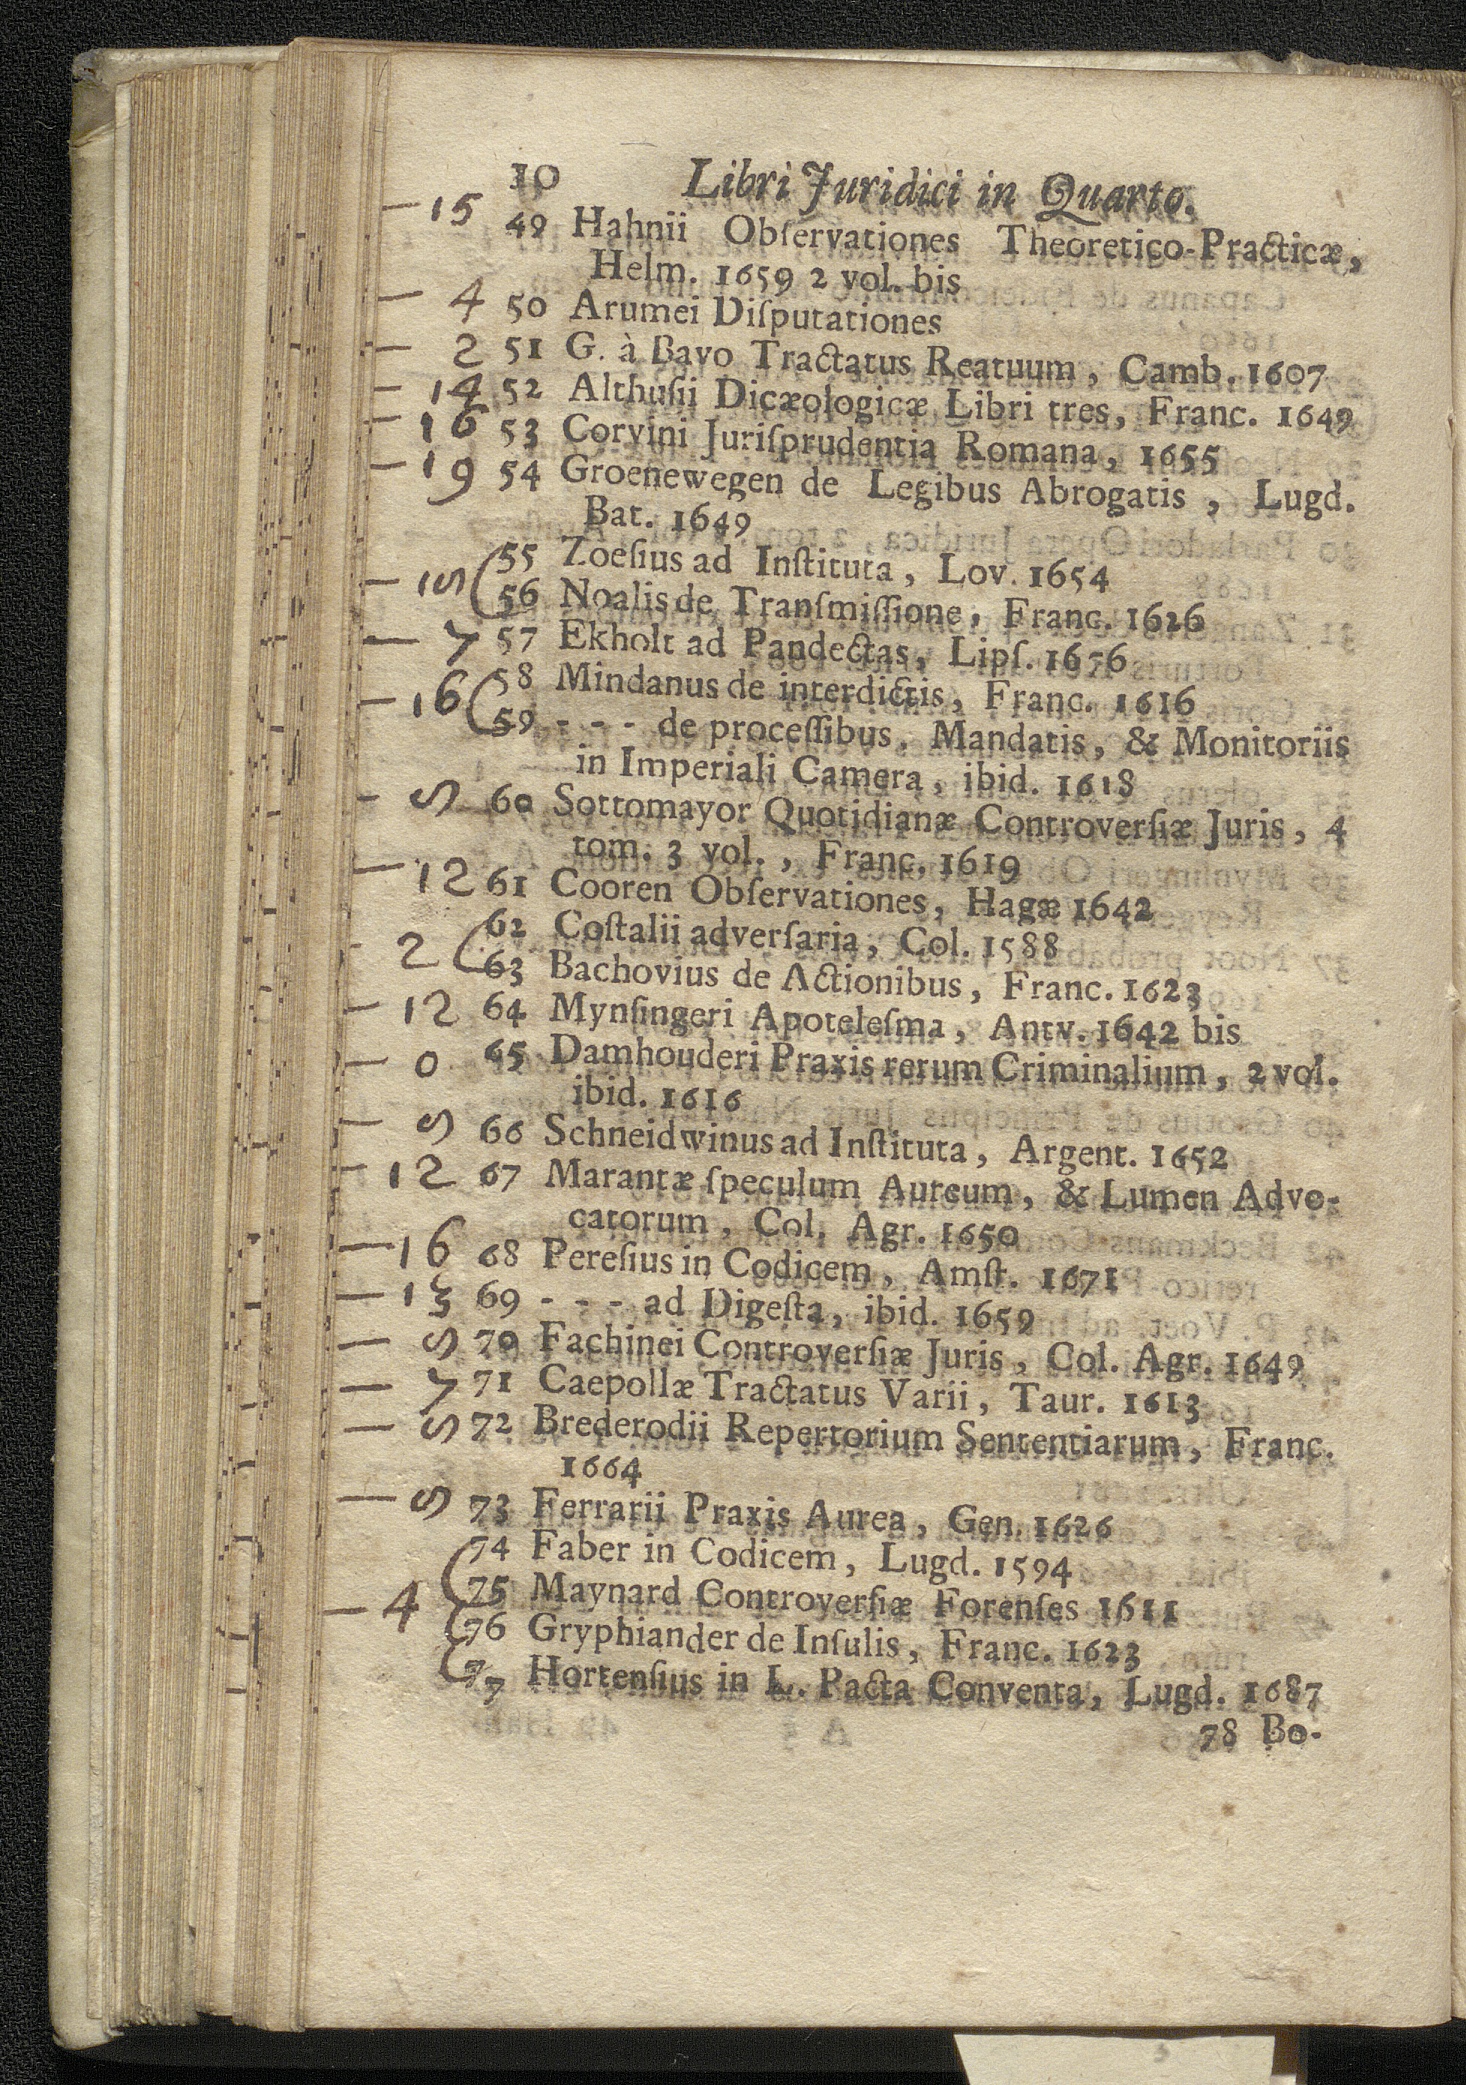 10 Libri Juridici in Quarto.
— 15 49 Hahnii Obſervationes Theoretico-Practicæ,
Helm. 1659 2 vol. bis
— 4 50 Arumei Diſputationes
— 2 51 G. à Bavo Tractatus Reatuum, Camb. 1607
— 14 52 Althuſii Dicæologicæ Libri tres, Franc. 1649
— 16 53 Corvini Juriſprudentia Romana, 1655
— 19 54 Groenewegen de Legibus Abrogatis, Lugd.
Bat. 1649
55 Zoeſius ad Inſtituta, Lov. 1654
— 1S ( 56 Noalis de Tranſmiſſione, Franc. 1626
— 7 57 Ekholt ad Pandectas, Lipſ. 1676
58 Mindanus de interdictis, Franc. 1616
— 16 ( 59 - - - de proceſſibus, Mandatis, & Monitoriis
in Imperiali Camera, ibid. 1618
— S 60 Sottomayor Quotidianæ Controverſiæ Juris, 4
tom. 3 vol., Franc. 1619
— 12 61 Cooren Obſervationes, Hagæ 1642
62 Coſtalii adverſaria, Col. 1588
- 2 ( 63 Bachovius de Actionibus, Franc. 1623
— 12 64 Mynſingeri Apoteleſma, Antv. 1642 bis
— 0 65 Damhouderi Praxis rerum Criminalium, 2 vol.
ibid. 1616
— S 66 Schneidwinus ad Inſtituta, Argent. 1652
— 12 67 Marantæ ſpeculum Aureum, & Lumen Advo-
catorum, Col. Agr. 1650
— 16 68 Pereſius in Codicem, Amſt. 1671
— 13 69 - - - ad Digeſta, ibid. 1659
— S 70 Fachinei Controverſiæ Juris, Col. Agr. 1649
— 7 71 Caepollæ Tractatus Varii, Taur. 1613
— S 72 Brederodii Repertorium Sententiarum, Franc.
1664
— S 73 Ferrarii Praxis Aurea, Gen. 1626
74 Faber in Codicem, Lugd. 1594
— 4 ( 75 Maynard Controverſiæ Forenſes 1611
76 Gryphiander de Inſulis, Franc. 1623
77 Hortenſius in L. Pacta Conventa, Lugd. 1687
78 Bo-